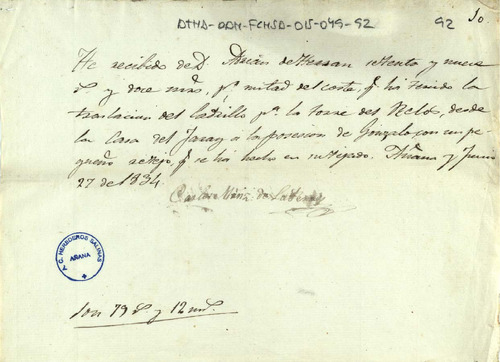 ATHA-DAH-FCHSA-015-049-92
92
He recibido de D. Adrián de Herran setenta y nueve
r.s y doce mrs, p.r mitad del coste, q.e ha tenido la
traslacion del ladrillo p.a la torre del Relox, desde
la Casa del Jaray a la posesion de Gonzalo, con un pe-
queño retejo, q.e se ha hecho en su tejado. Añana y Junio
27 de 1834.
de
A. C. HEREDEROS SALINAS
AÑANA
Son 79 r.s y 12 mrs.